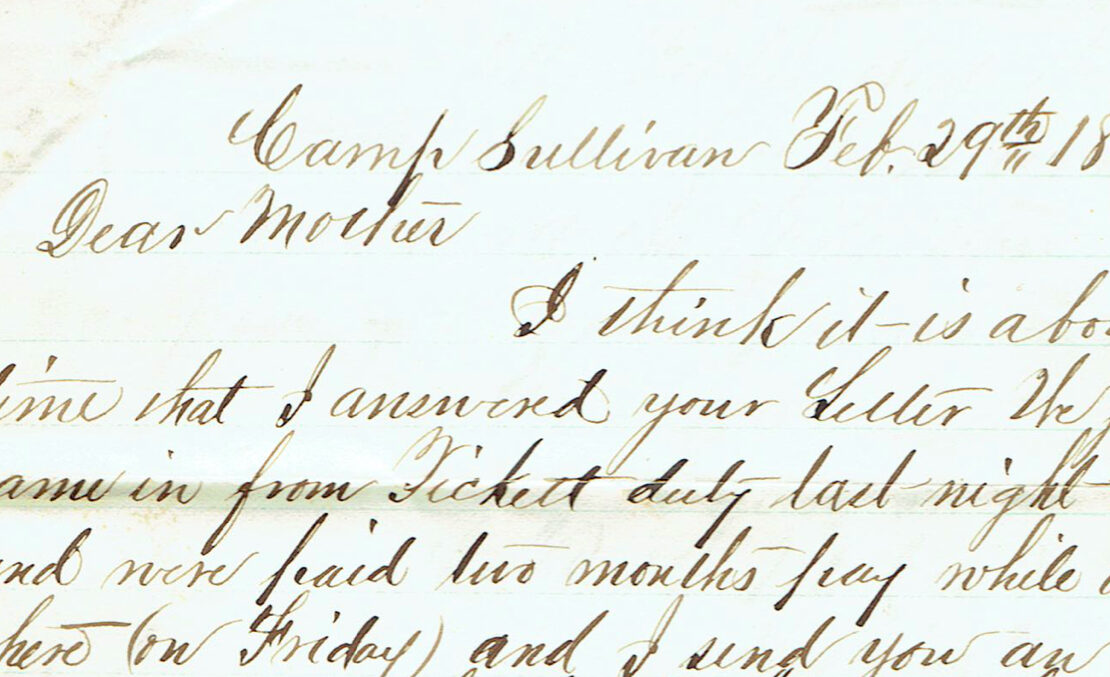 Camp Sullivan Feb. 29th 18
Dear Mother
I think it is abo
time that I answered your Letter We
ame in from Pickett duty last night
nd were paid two months pay while
here (on Friday) and I send you an